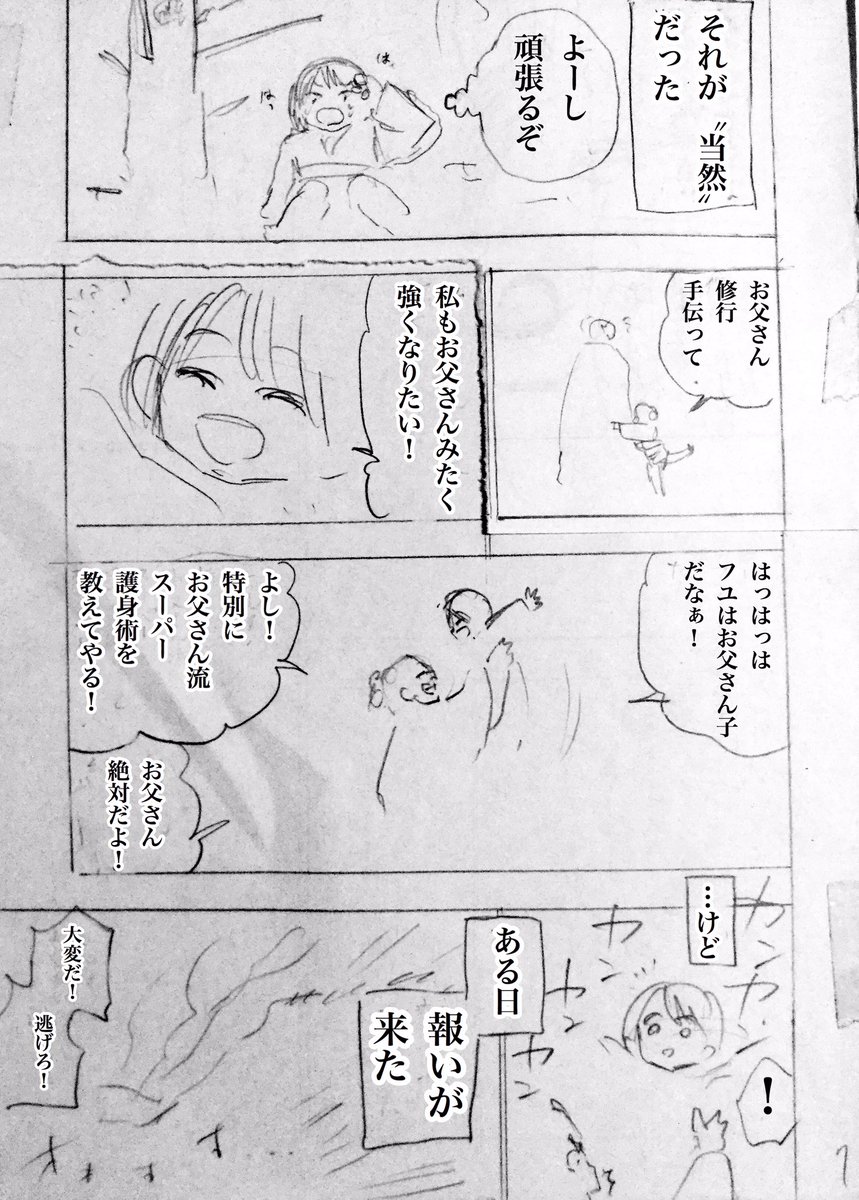 それが〝当然〟
だった
よーし
頑張るぞ
は、
はっ
お父さん
修行
手伝って
私もお父さんみたく
強くなりたい！
はっはっは
フユはお父さん子
だなぁ！
よし！
特別に
お父さん流
スーパー
護身術を
教えてやる！
お父さん
絶対だよ！
…けど
カンカン
カン
カンカン
！
ある日
報いが
来た
大変だ！
逃げろ！